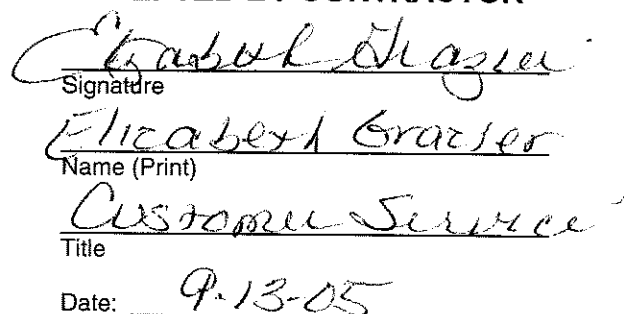 Elizabeth Grazier
Signature
Elizabeth Grazier
Name (Print)
Customer Service
Title
Date: 9-13-05